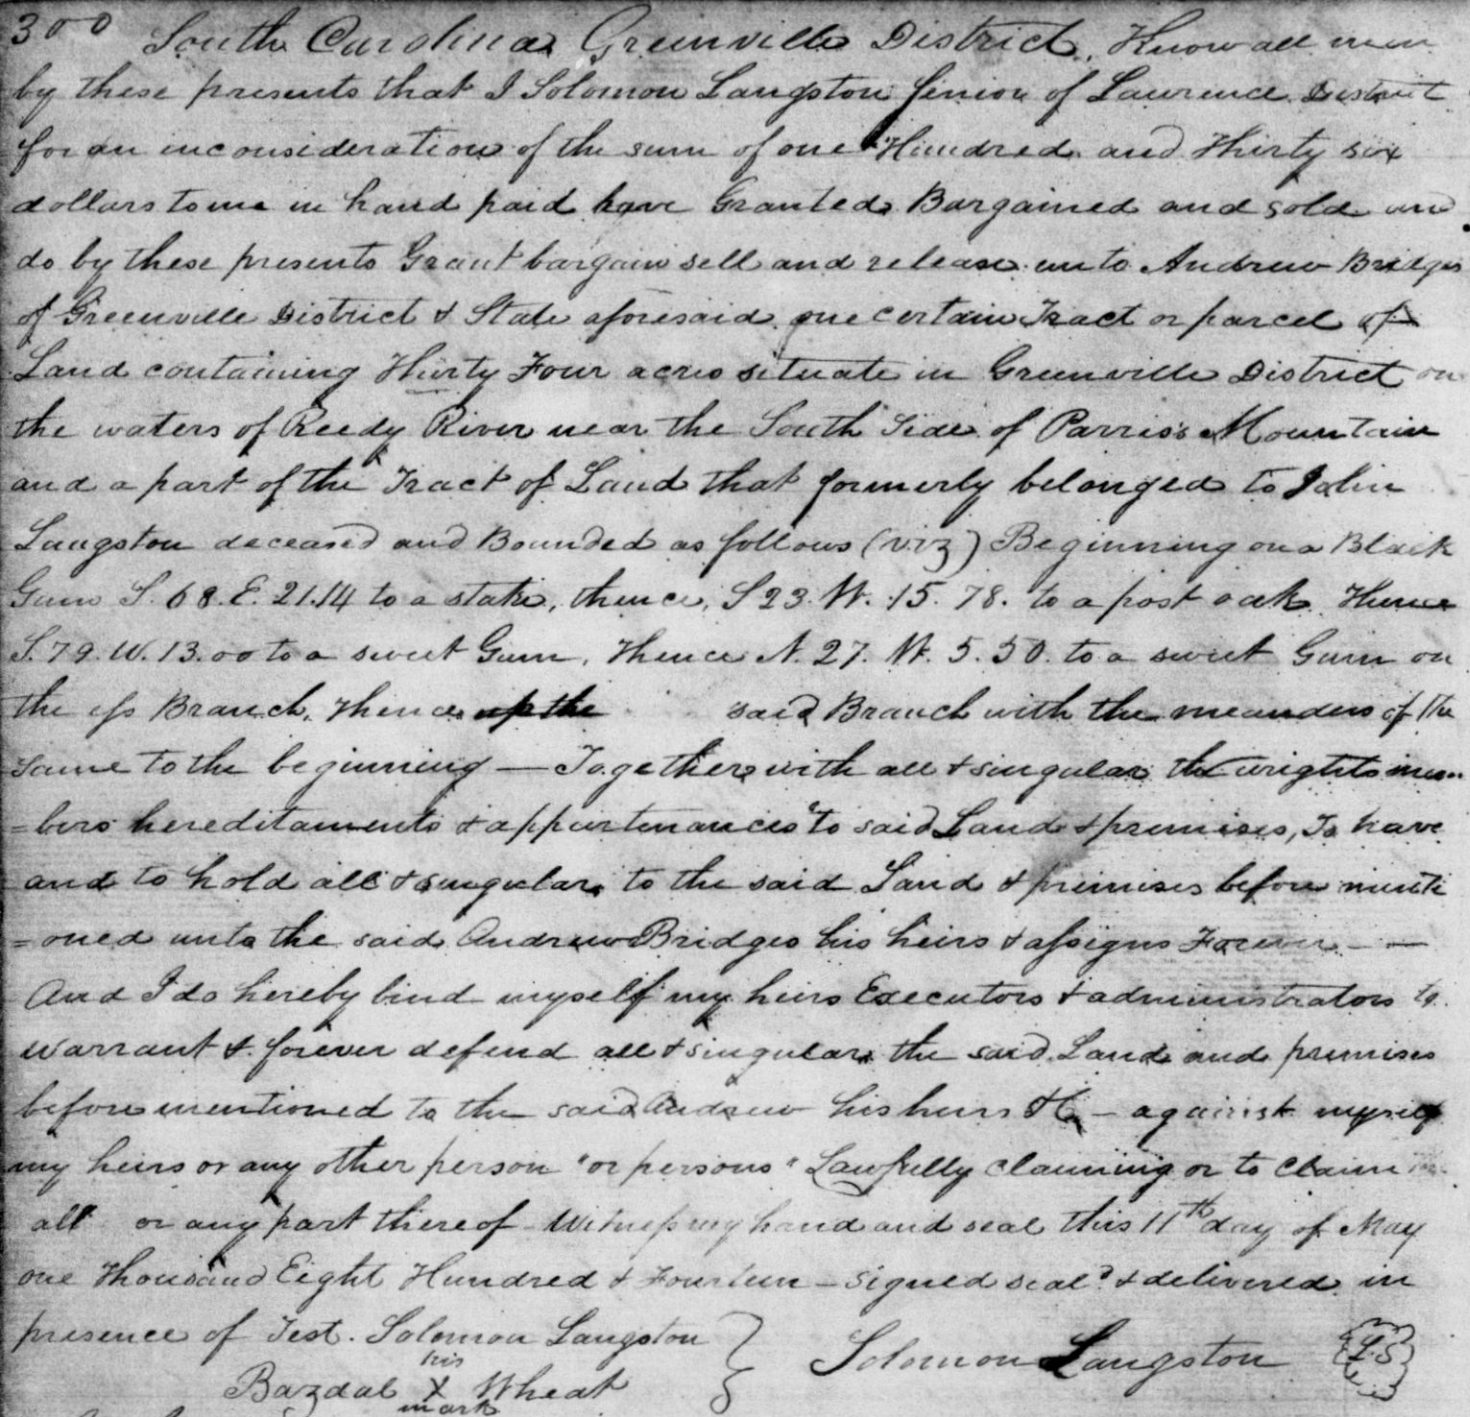 300 South Carolina Greenville District. Know all men
by these presents that I Solomon Langston Senior of Laurence District
for an inconsideration of the sum of one Hundred and Thirty six
dollars to me in hand paid have Granted Bargained and sold and
do by these presents Grant bargain sell and release unto Andrew Bridges
of Greenville District & State aforesaid one certain Tract or parcel of
Land containing Thirty Four acres situate in Greenville District on
the waters of Reedy River near the South Side of Parris's Mountain
and a part of the Tract of Land that formerly belonged to John
Langston deceased and Bounded as follows (viz) Beginning on a Black
Gum S. 68. E. 21.14 to a stake, thence, S 23. W. 15. 78. to a post oak Thence
S. 79. W. 13.00 to a sweet Gum, Thence N. 27. W. 5. 50. to a sweet Gum on
the Branch, Thence up the said Branch with the meanders of the
same to the beginning — Together with all & singular the wrights mem-
=bers hereditaments & appurtenances to said Land & premises, To have
and to hold all & singular to the said Land & premises before menti
=oned unto the said Andrew Bridges his heirs & assigns Forever — —
And I do hereby bind myself my heirs Executors & administrators to
warrant & forever defend all & singular the said Land and premises
before mentioned to the said Andrew his heirs &c — against myself
my heirs or any other person "or persons" Lawfully claiming or to claim
all or any part thereof Witness my hand and seal this 11th day of May
one Thousand Eight Hundred & Fourteen — signed seald & delivered in
presence of Test. Solomon Langston } Solomon Langston L.S
his
Bazdal X Wheat
mark